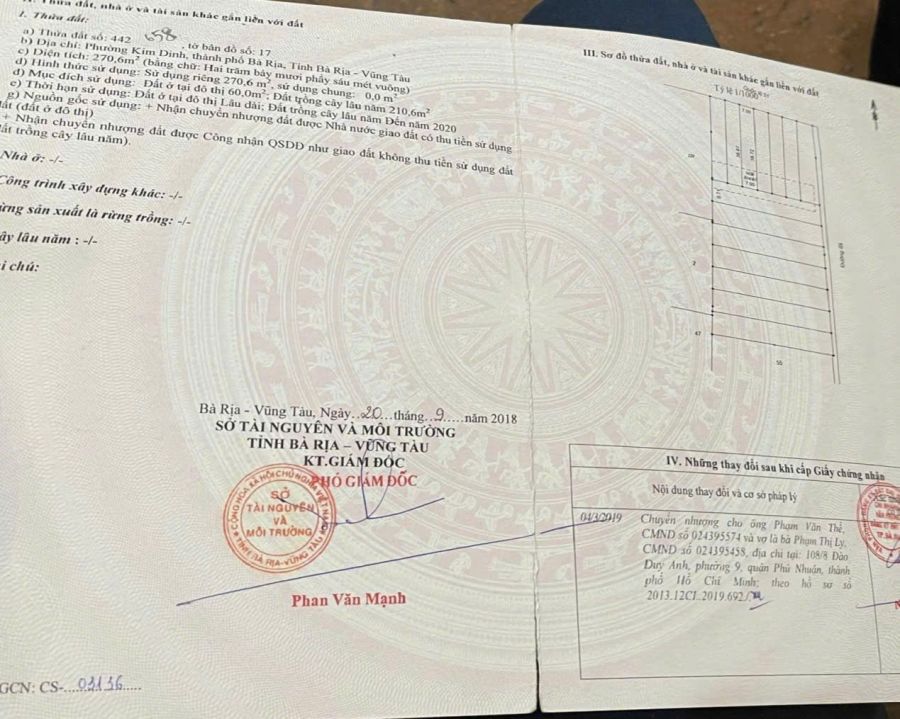 Thửa đất, nhà ở và tài sản khác gắn liền với đất
1. Thửa đất:
a) Thửa đất số: 442 658, tờ bản đồ số: 17
b) Địa chỉ: Phường Kim Dinh, thành phố Bà Rịa, Tỉnh Bà Rịa - Vũng Tàu
c) Diện tích: 270,6m² (bằng chữ: Hai trăm bảy mươi phẩy sáu mét vuông)
d) Hình thức sử dụng: Sử dụng riêng 270,6 m², sử dụng chung: 0,0 m²
đ) Mục đích sử dụng: Đất ở tại đô thị 60,0m²; Đất trồng cây lâu năm 210,6m²
e) Thời hạn sử dụng: Đất ở tại đô thị Lâu dài; Đất trồng cây lâu năm Đến năm 2020
g) Nguồn gốc sử dụng: + Nhận chuyển nhượng đất được Nhà nước giao đất có thu tiền sử dụng
đất (đất ở đô thị)
+ Nhận chuyển nhượng đất được Công nhận QSDĐ như giao đất không thu tiền sử dụng đất
đất trồng cây lâu năm).
Nhà ở: -/-
Công trình xây dựng khác: -/-
rừng sản xuất là rừng trồng: -/-
cây lâu năm : -/-
i chú:
Bà Rịa - Vũng Tàu, Ngày..20...tháng..9.....năm 2018
SỞ TÀI NGUYÊN VÀ MÔI TRƯỜNG
TỈNH BÀ RỊA – VŨNG TÀU
KT.GIÁM ĐỐC
PHÓ GIÁM ĐỐC
CỘNG HÒA XÃ HỘI CHỦ NGHĨA VIỆT NAM
SỞ
TÀI NGUYÊN
VÀ
MÔI TRƯỜNG
TỈNH BÀ RỊA-VŨNG TÀU
Phan Văn Mạnh
GCN: CS-....03136.....
III. Sơ đồ thửa đất, nhà ở và tài sản khác gắn liền với đất
Tỷ lệ 1/1000
7.00
7.00
2
47
55
IV. Những thay đổi sau khi cấp Giấy chứng nhận
Nội dung thay đổi và cơ sở pháp lý
04/3/2019
Chuyển nhượng cho ông Phạm Văn Thế,
CMND số 024395574 và vợ là bà Phạm Thị Ly,
CMND số 024395458, địa chỉ tại: 108/8 Đào
Duy Anh, phường 9, quận Phú Nhuận, thành
phố Hồ Chí Minh; theo hồ sơ số
2013.12CI.2019.692./